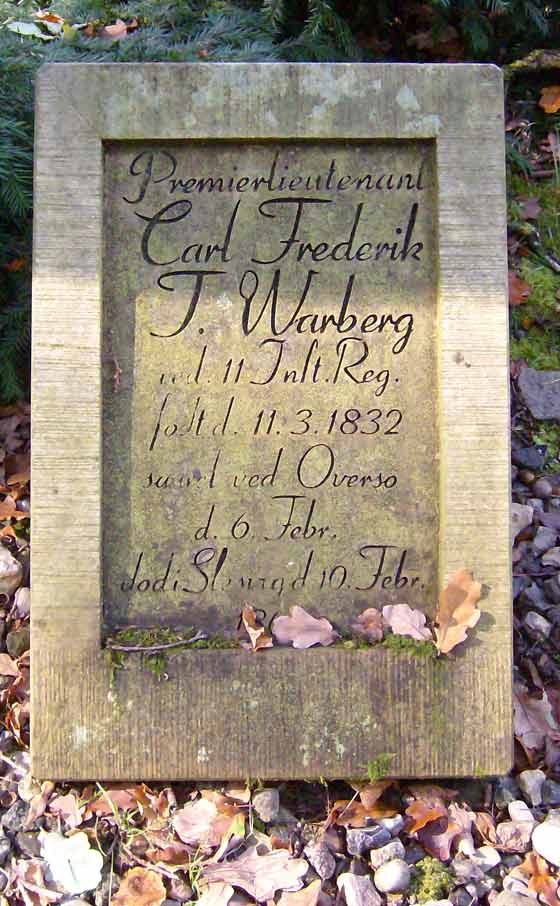 Premierlieutenant
Carl Frederik
T. Warberg
ved 11 Inft. Reg.
født d. 11.3.1832
saaret ved Oversø
d. 6. Febr.
død i Slesvig d 10. Febr.